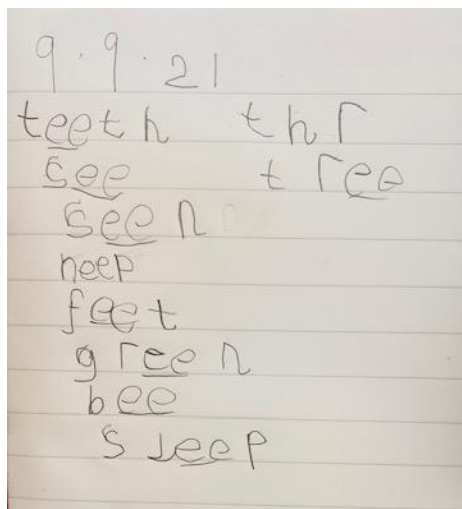 9.9.21
teeth thr
see tree
seen
neep
feet
green
bee
sleep